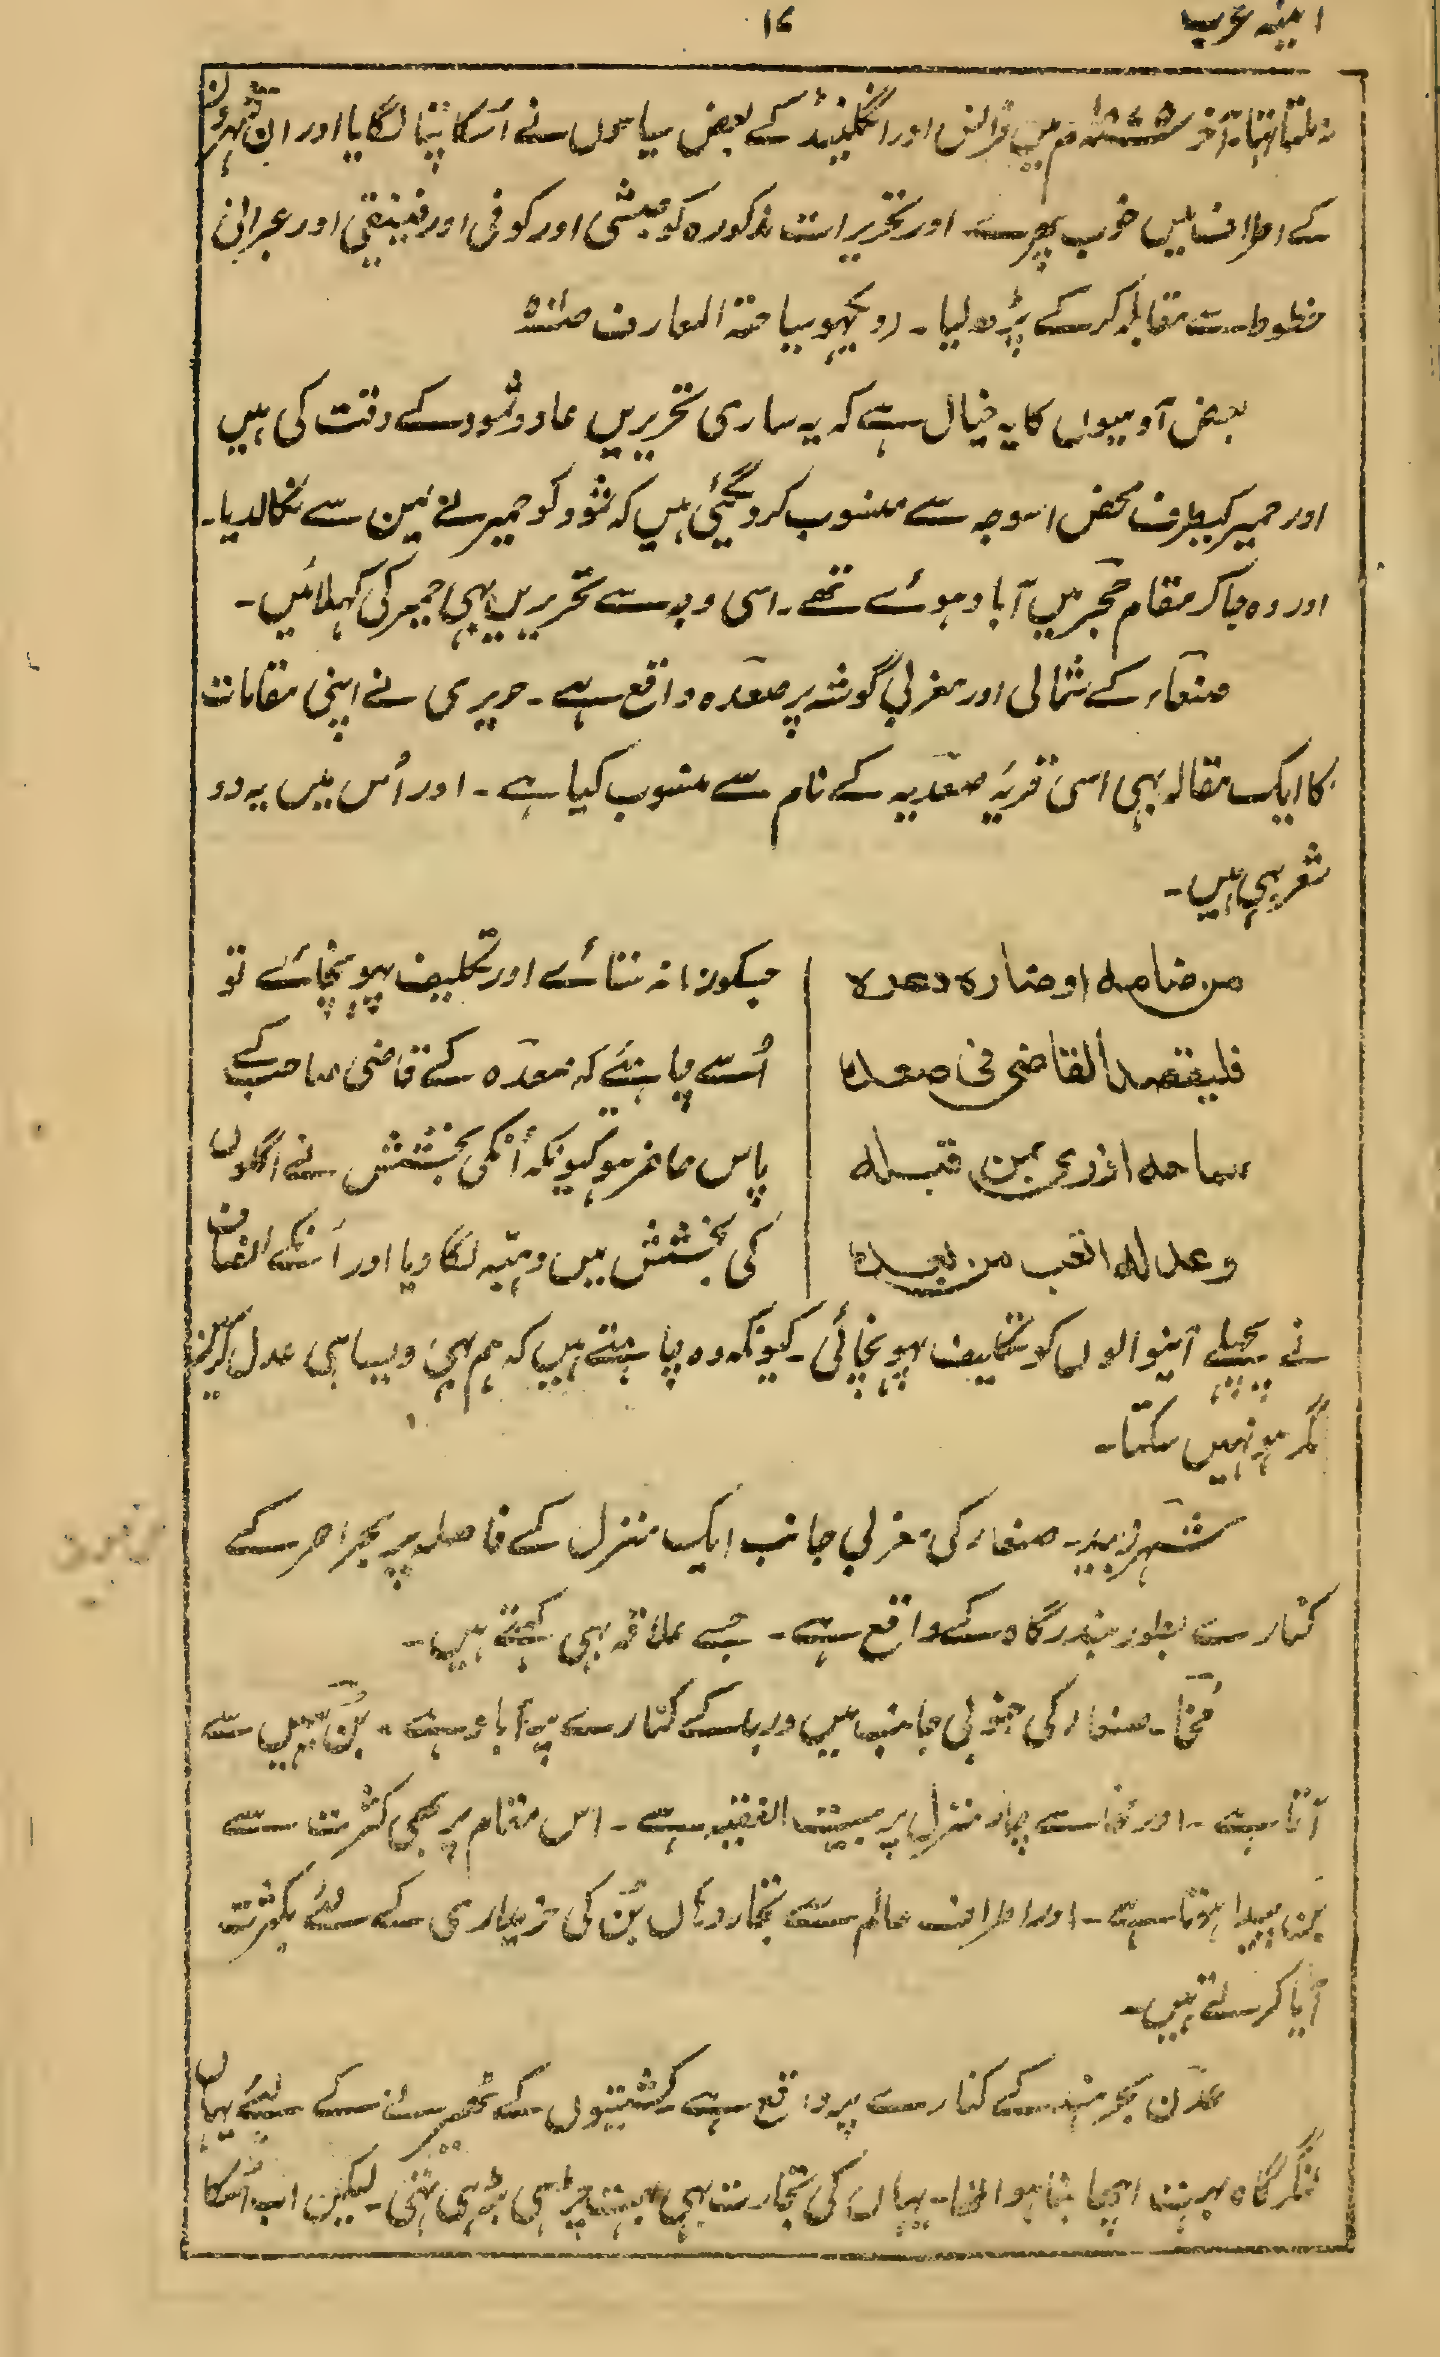 امینہ عرب
۱۶
نہ ملتا تھا۔ آخر میں فرانس اور انگلینڈ کے بعض سیاحوں نے اُسکا پتا لگایا اور ان شہروں
کے اطراف میں خوب پھرے۔ اور تحریرات مذکورہ کو حبشی اور کوفی اور فینیقی اور عبرانی
خطوط سے مقابلہ کرکے پڑہ لیا۔ (دیکھو سیاحتہ المعارف
بعض آدمیوں کا یہ خیال ہے کہ یہ ساری تحریریں عاد و ثمود کے وقت کی ہیں
اور حمیر کیطرف محض اسوجہ سے منسوب کردیگئی ہیں کہ ثمود کو حمیر نے یمن سے نکالدیا۔
اور وہ جاکر مقام حجر میں آباد ہوئے تھے۔ اسی وجہ سے تحریریں بہی حمیر کی کہلائیں۔
صنعاء کے شمالی اور مغربی گوشہ پر صعدہ واقع ہے۔ حریری نے اپنی مقامات
کا ایک مقالہ بہی اسی قریۂ صعدیہ کے نام سے منسوب کیا ہے۔ اور اُس میں یہ دو
شعر بہی ہیں۔
من ضامہ او ضارہ دھرہ
جسکو زمانہ ستائے اور تکلیف پہونچائے تو
فلیقصد القاضی فی صعدہ
اُسے چاہئے کہ صعدہ کے قاضی صاحب کے
سماحہ ازری بمن قبلہ
پاس حاضر ہو کیونکہ اُنکی بخشش نے اگلوں
وعدلہ اتعب من بعدہ
کی بخشش میں دہبّہ لگا دیا اور اُنکے انصاف
نے پچھلے آنیوالوں کو تکلیف پہونچائی۔ کیونکہ وہ چاہتے ہیں کہ ہم بہی ویسا ہی عدل کریں
مگر ہو نہیں سکتا۔
شہر زبید۔ صنعاء کی مغربی جانب ایک منزل کے فاصلہ پر بحر احمر کے
کنارے بطور بندرگاہ کے واقع ہے۔ جسے علاقہ بہی کہتے ہیں۔
مُخا۔ صنعاء کی جنوبی جانب میں دریا کے کنارے پر آباد ہے۔ بُن یہیں سے
آتا ہے۔ اور مخا سے چار منزل پر بیت الفقیہ ہے۔ اس مقام پر بھی کثرت سے
بُن پیدا ہوتا ہے۔ اور اطراف عالم سے تجار وہاں بُن کی خریداری کے لئے بکثرت
آیا کرتے ہیں۔
عدن بحر ہند کے کنارے پر واقع ہے۔ کشتیوں کے ٹھیرنے کے لیئے یہاں
لنگر گاہ بہت اچھا بنا ہوا تھا۔ یہاں کی تجارت بہی بہت چڑہی بڑہی تہی۔ لیکن اب اُسکا